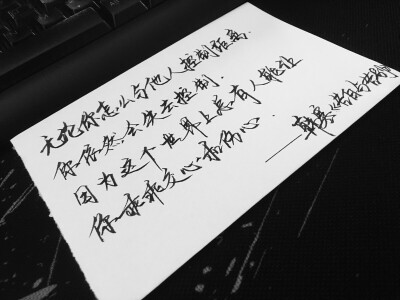 无论你怎么与他人控制距离.
你依然会失去控制.
因为这个世界上总有人能让
你乖乖交心和伤心.
——韩寒《告白与告别》